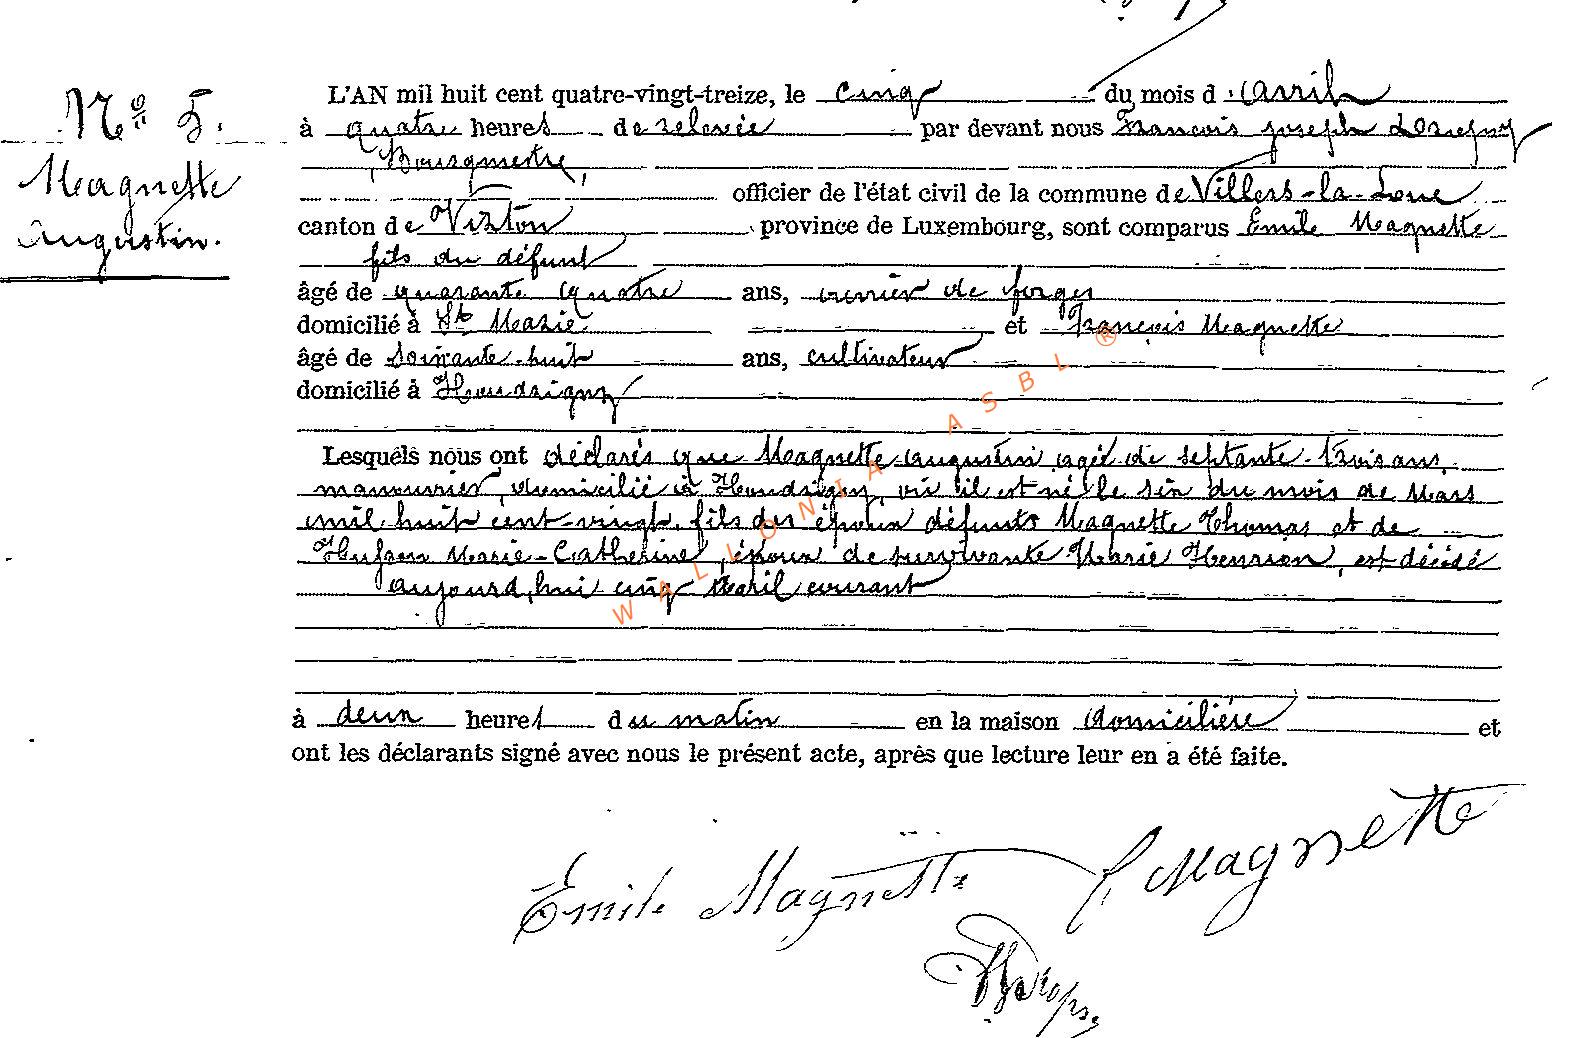 N° 5.
Magnette
Augustin.
L'AN mil huit cent quatre-vingt-treize, le cinq du mois d'avril
à quatre heures de relevée par devant nous François Joseph
Bourgmestre,
officier de l'état civil de la commune de Villers-la-Loue
canton de Virton province de Luxembourg, sont comparus Emile Magnette
fils du défunt
âgé de quarante quatre ans, ouvrier de forges
domicilié à Ste Marie et François Magnette
âgé de soixante-huit ans, cultivateur
domicilié à Houdrigny
Lesquels nous ont déclarés que Magnette Augustin agé de septante-trois ans,
manouvrier, domicilié à Houdrigny, où il est né le six du mois de Mars
mil huit cent-vingt, fils des époux défunts Magnette Thomas et de
Marie-Catherine, époux de survivante Marie Henrion, est décédé
aujourd'hui cinq avril courant
à deux heures du matin en la maison domicilière et
ont les déclarants signé avec nous le présent acte, après que lecture leur en a été faite.
Emile Magnette F. Magnette
WALLONIA ASBL ®